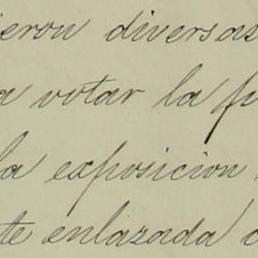 ieron diversas
a votar la p
la exposicion
te enlazada